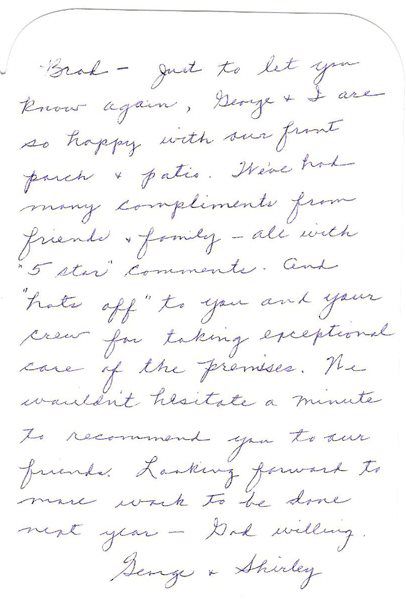 Brad - Just to let you
know again, George & I are
so happy with our front
porch & patio. We've had
many compliments from
friends & family - all with
"5 star" comments. And
"hats off" to you and your
crew for taking exceptional
care of the premises. We
wouldn't hesitate a minute
to recommend you to our
friends. Looking forward to
more work to be done
next year - God willing.
George & Shirley